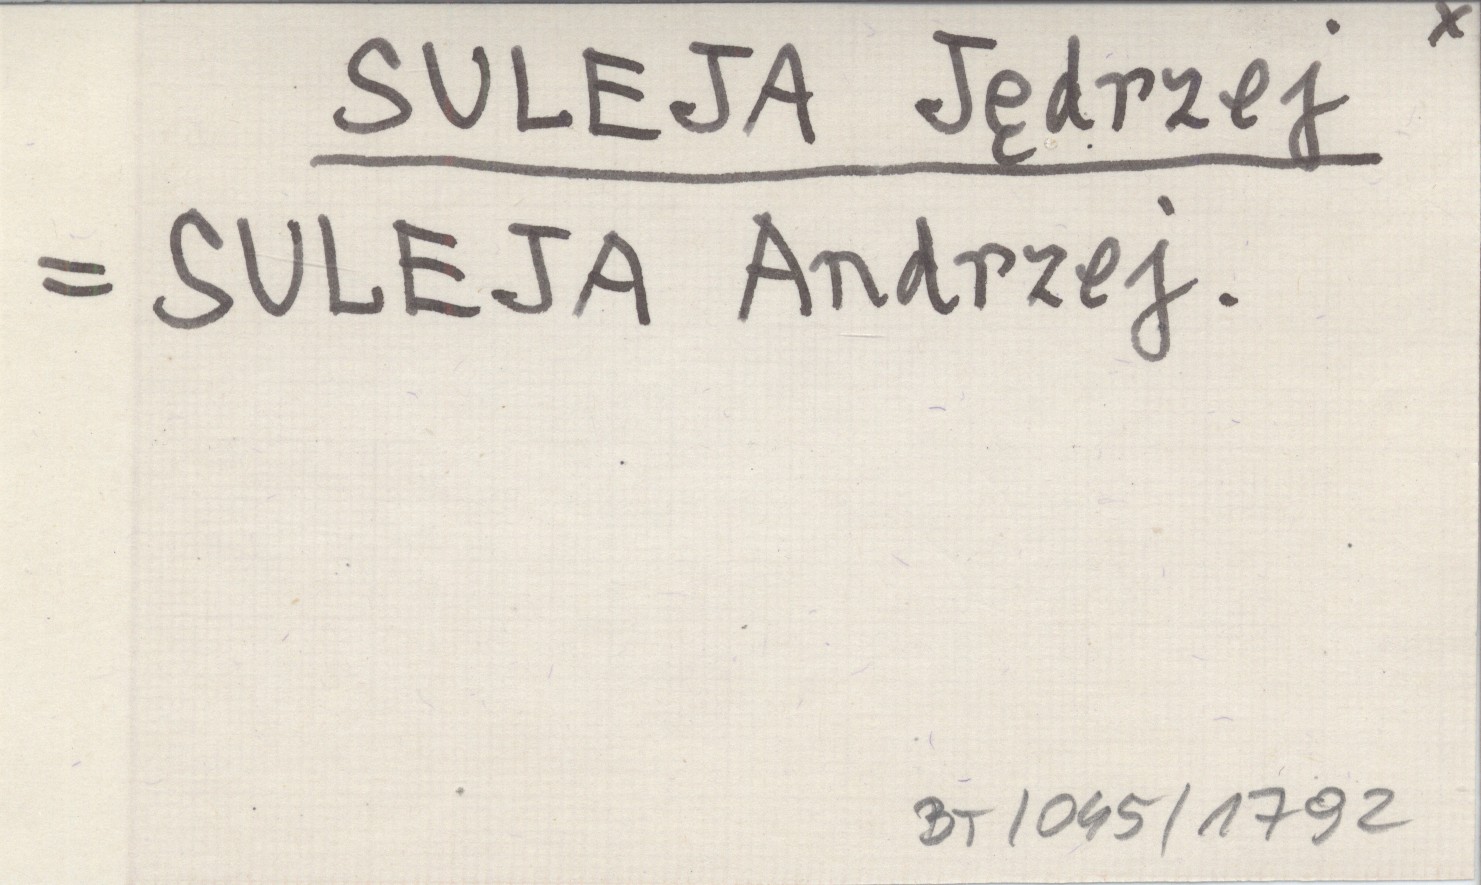 x
SULEJA Jędrzej
= SULEJA Andrzej.
BT/045/1792